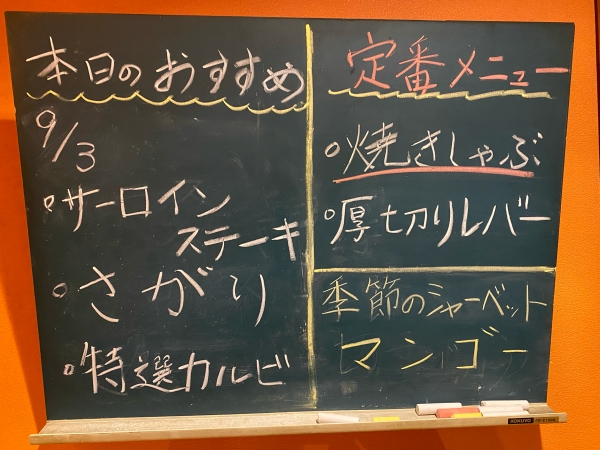 本日のおすすめ
9/3
○サーロイン
ステーキ
○さがり
○特選カルビ
定番メニュー
○焼きしゃぶ
○厚切りレバー
季節のシャーベット
マンゴー
KOKUYO